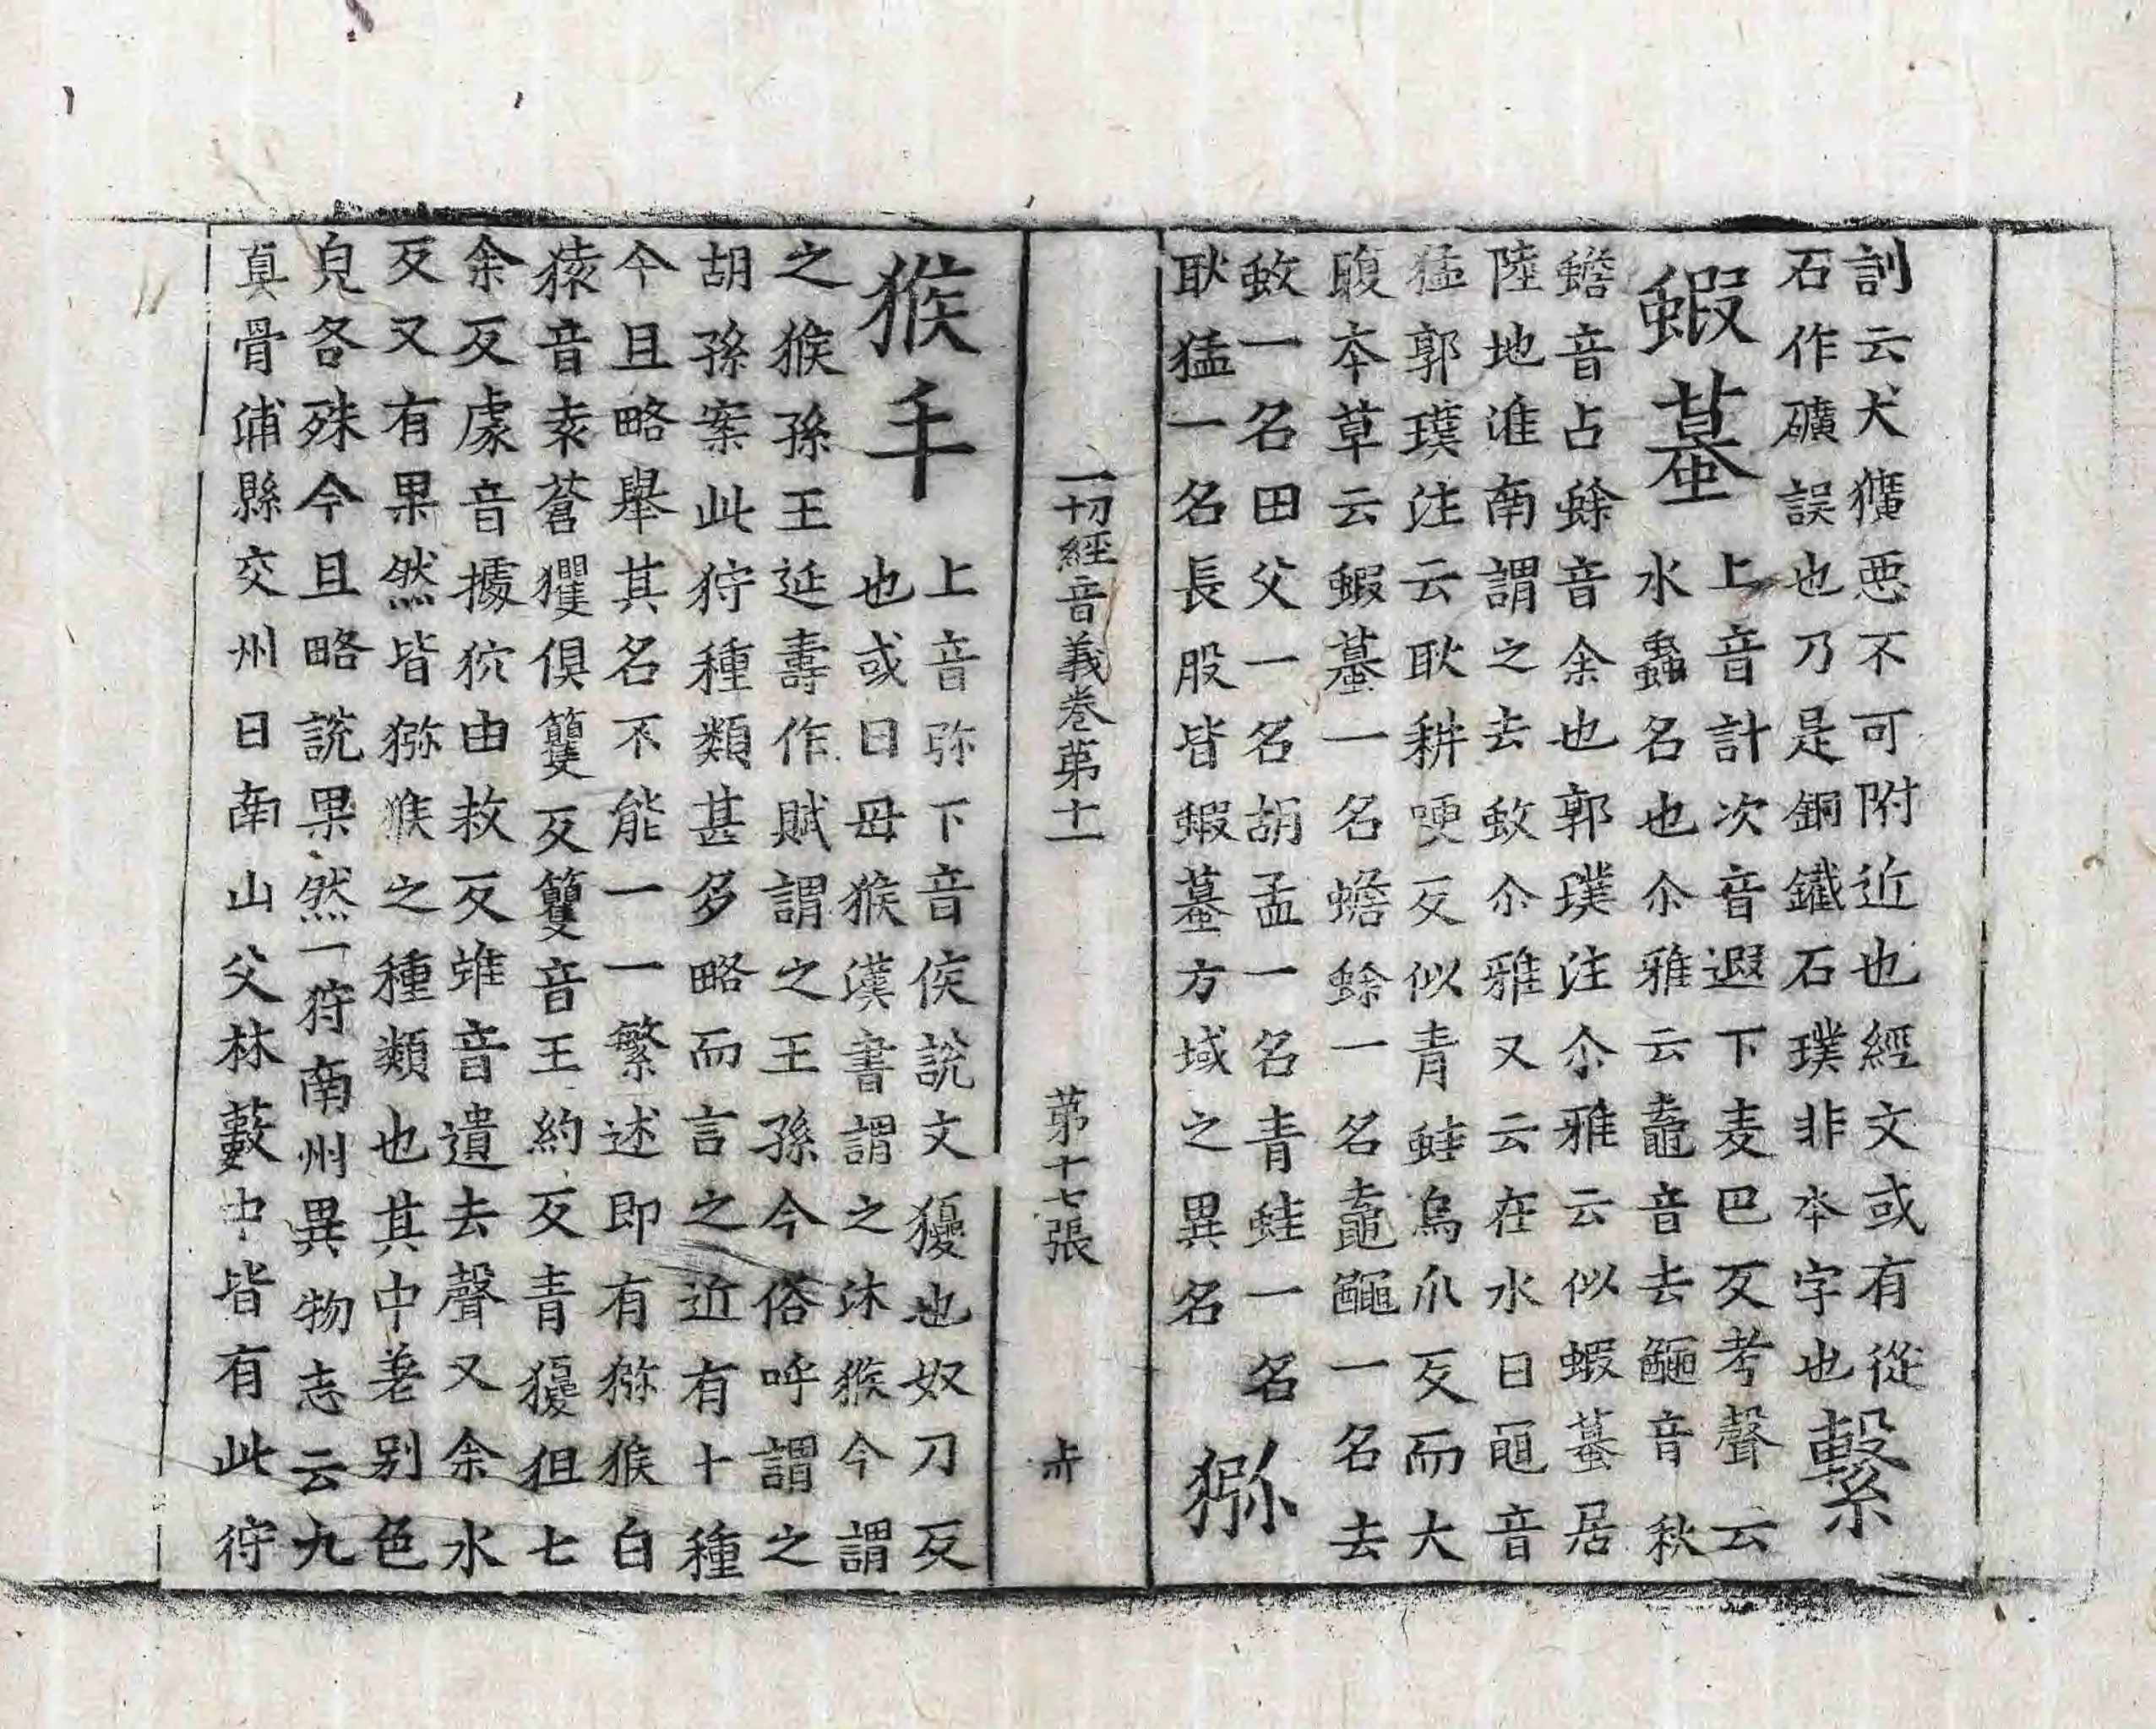 訓云犬獷惡不可附近也經文或有從
石作礦誤也乃是銅鐵石璞非本字也繫
蝦蟇上音計次音遐下麦巴反考聲云
水蟲名也尒雅云鼀音去𪓰音秋
蟾音占蜍音余也郭璞注尒雅云似蝦蟇居
陸地淮南謂之去蚥尒雅又云在水曰黽音
猛郭璞注云耿耕哽反似青蛙烏爪反而大
腹本草云蝦蟇一名蟾蜍一名鼀𪓰一名去
蚥一名田父一名胡孟一名青蛙一名
耿猛一名長股皆蝦蟇方域之異名
猕
一切經音義卷第十一 第十七張 㐀
猴手上音弥下音侯說文獿也奴刀反
也或曰母猴漢書謂之沐猴今謂
之猴孫王延壽作賦謂之王孫今俗呼謂之
胡孫案此狩種類甚多略而言之近有十種
今且略舉其名不能一一繁述即有猕猴白
猿音袁蒼玃俱籰反籰音王約反青獿狙七
余反豦音據狖由救反蜼音遺去聲又余水
反又有果然皆猕猴之種類也其中差別色
皃各殊今且略說果然一狩南州異物志云九
真骨浦縣交州日南山父林藪中皆有此狩